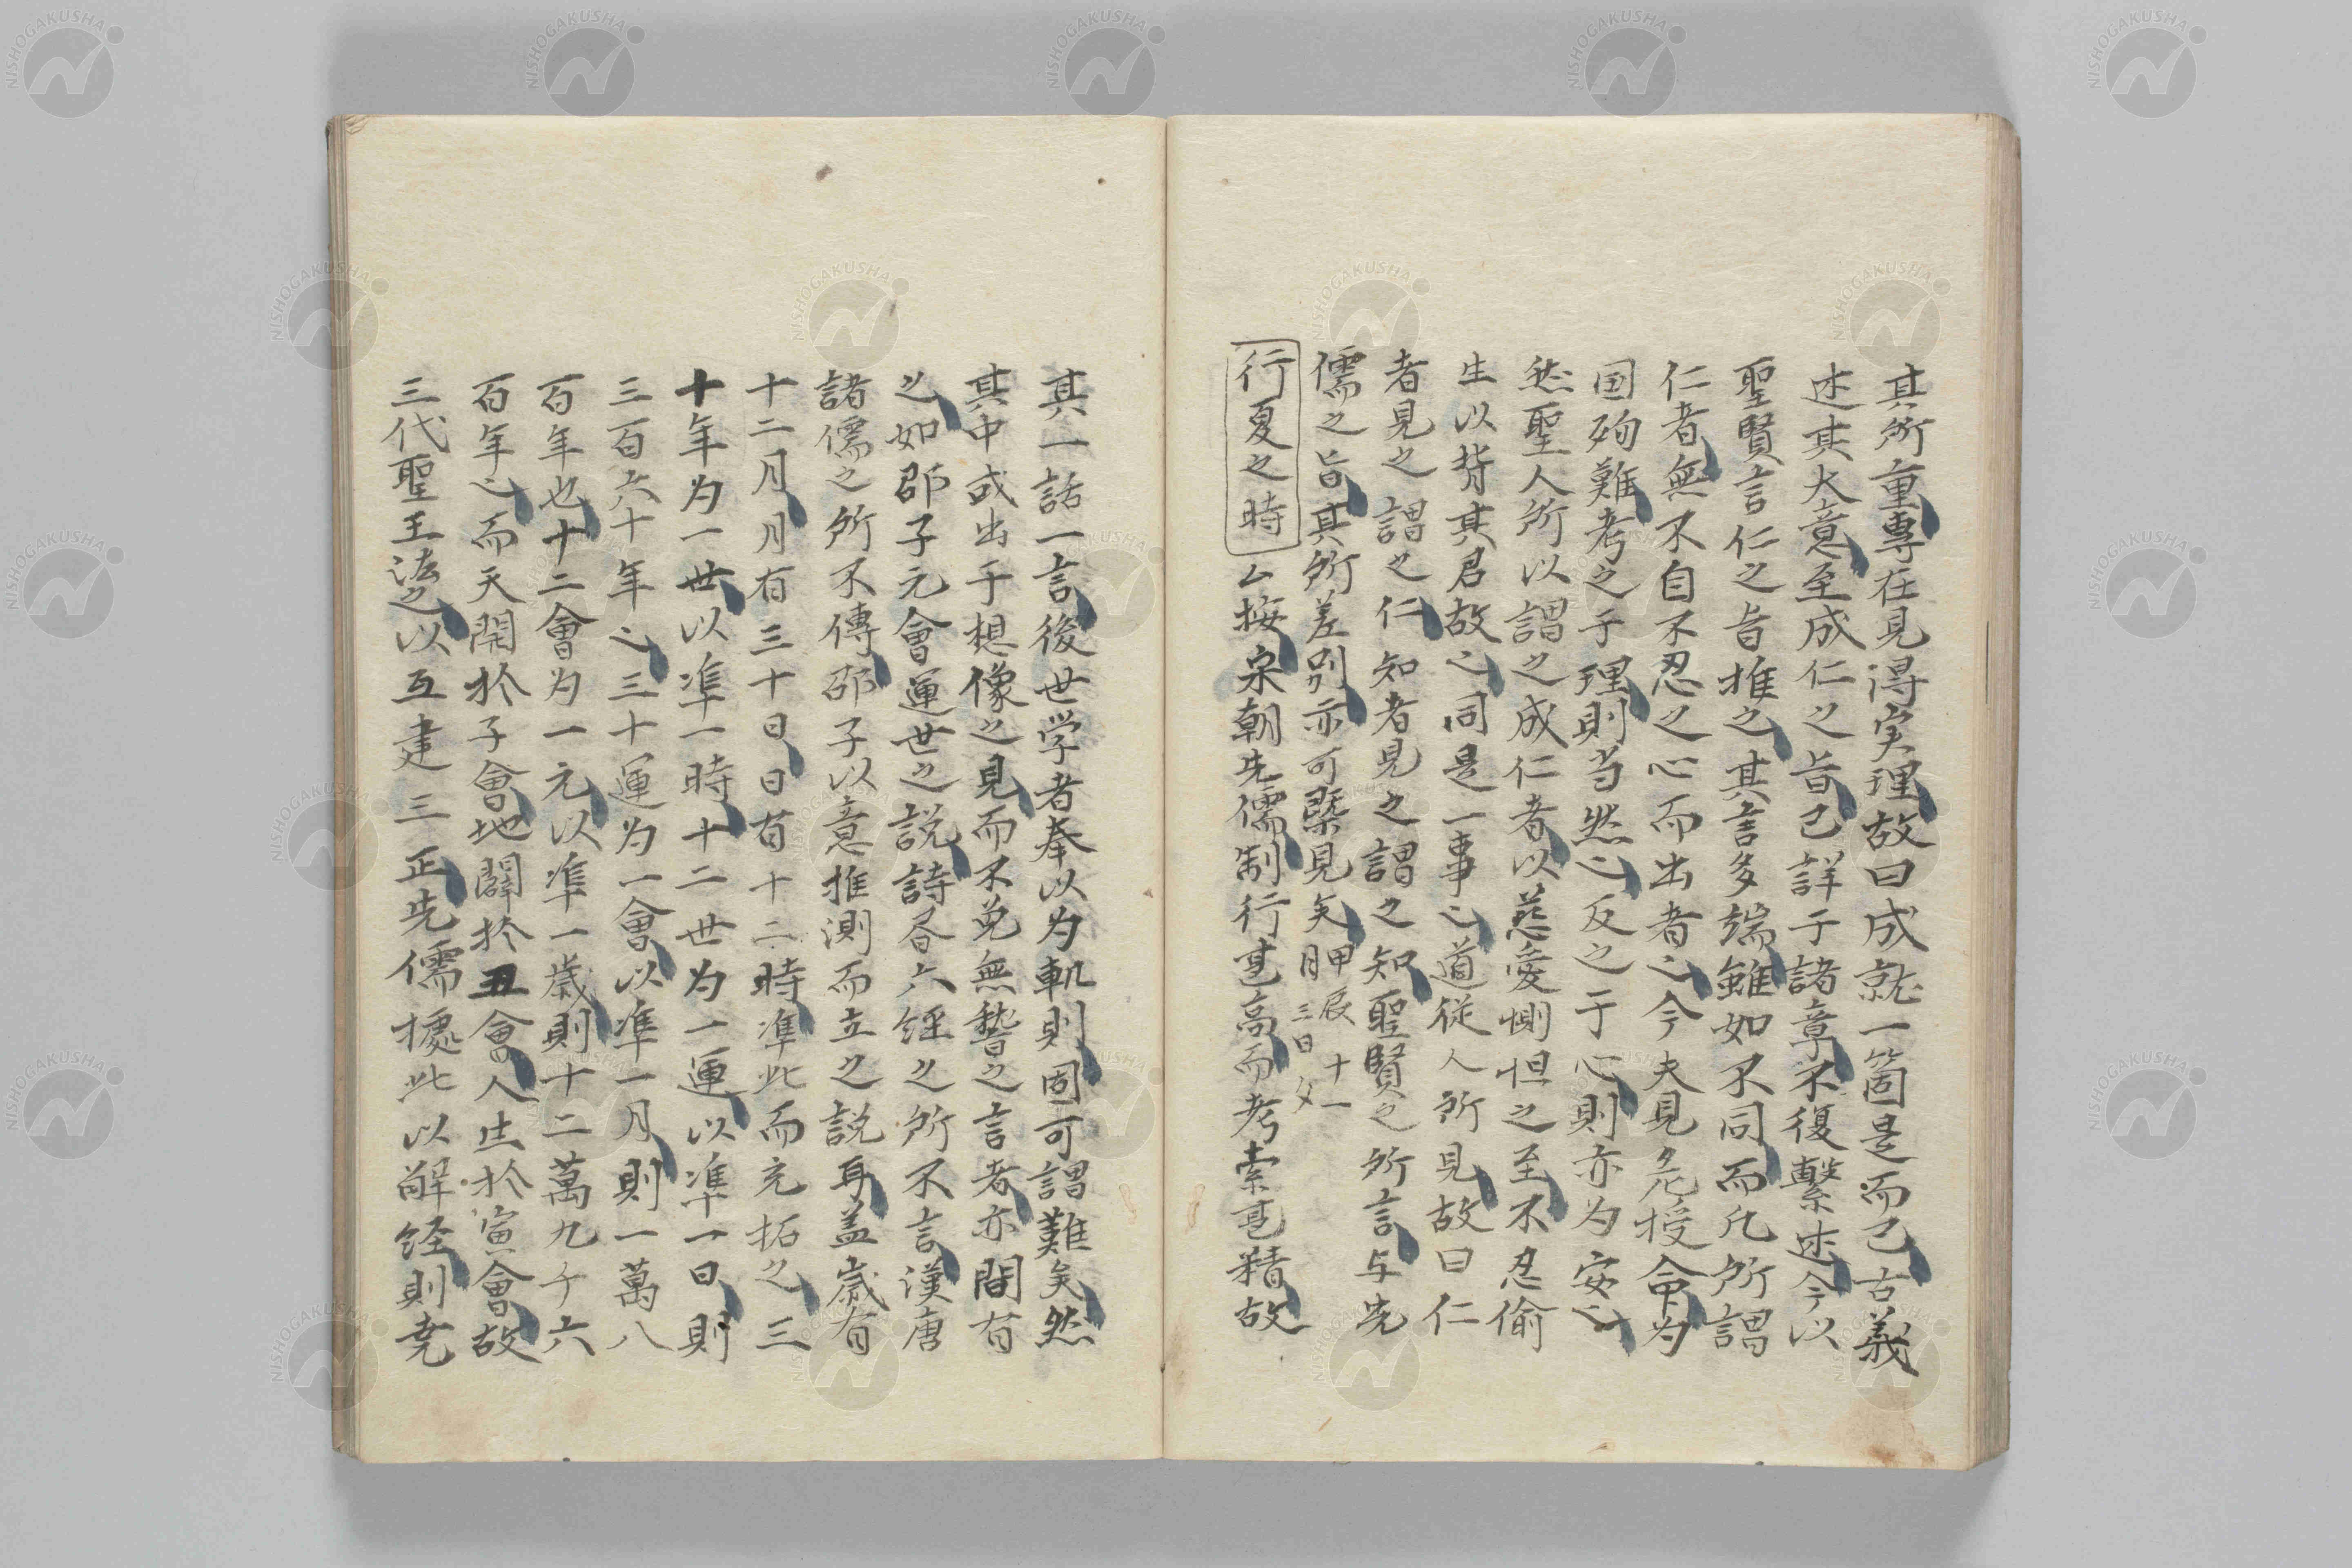 其所重專在見得実理故曰成就一箇是而已古義
述其大意至成仁之旨已詳于諸章不復繫述今以
聖賢言仁之旨推之其言多端雖如不同而凡所謂
仁者無不自不忍之心而出者也今夫見危授命为
国殉難考之于理則当然也反之于心則亦为安也
然聖人所以謂之成仁者以慈愛惻怛之至不忍偷
生以背其君故也同是一事也道従人所見故曰仁
者見之謂之仁知者見之謂之知聖賢之所言与先
儒之旨其所差別亦可槩見矣
行夏之時 厶按宋朝先儒制行甚高而考索甚精故
其一話一言後世学者奉以为軌則固可謂難矣然
其中或出于想像之見而不免無稽之言者亦間有
之如邵子元會運世之說詩各六経之所不言漢唐
諸儒之所不傳邵子以意推測而立之説耳盖歳有
十二月月有三十日日有十二時準此而充拓之三
十年为一世以準一時十二世为一運以準一日則
三百六十年也三十運为一會以準一月則一萬八
百年也十二會为一元以準一歳則十二萬九千六
百年也而天開於子會地闢於丑會人生於寅會故
三代聖王法之以互建三正先儒據此以解経則尭
NISHOGAKUSHA